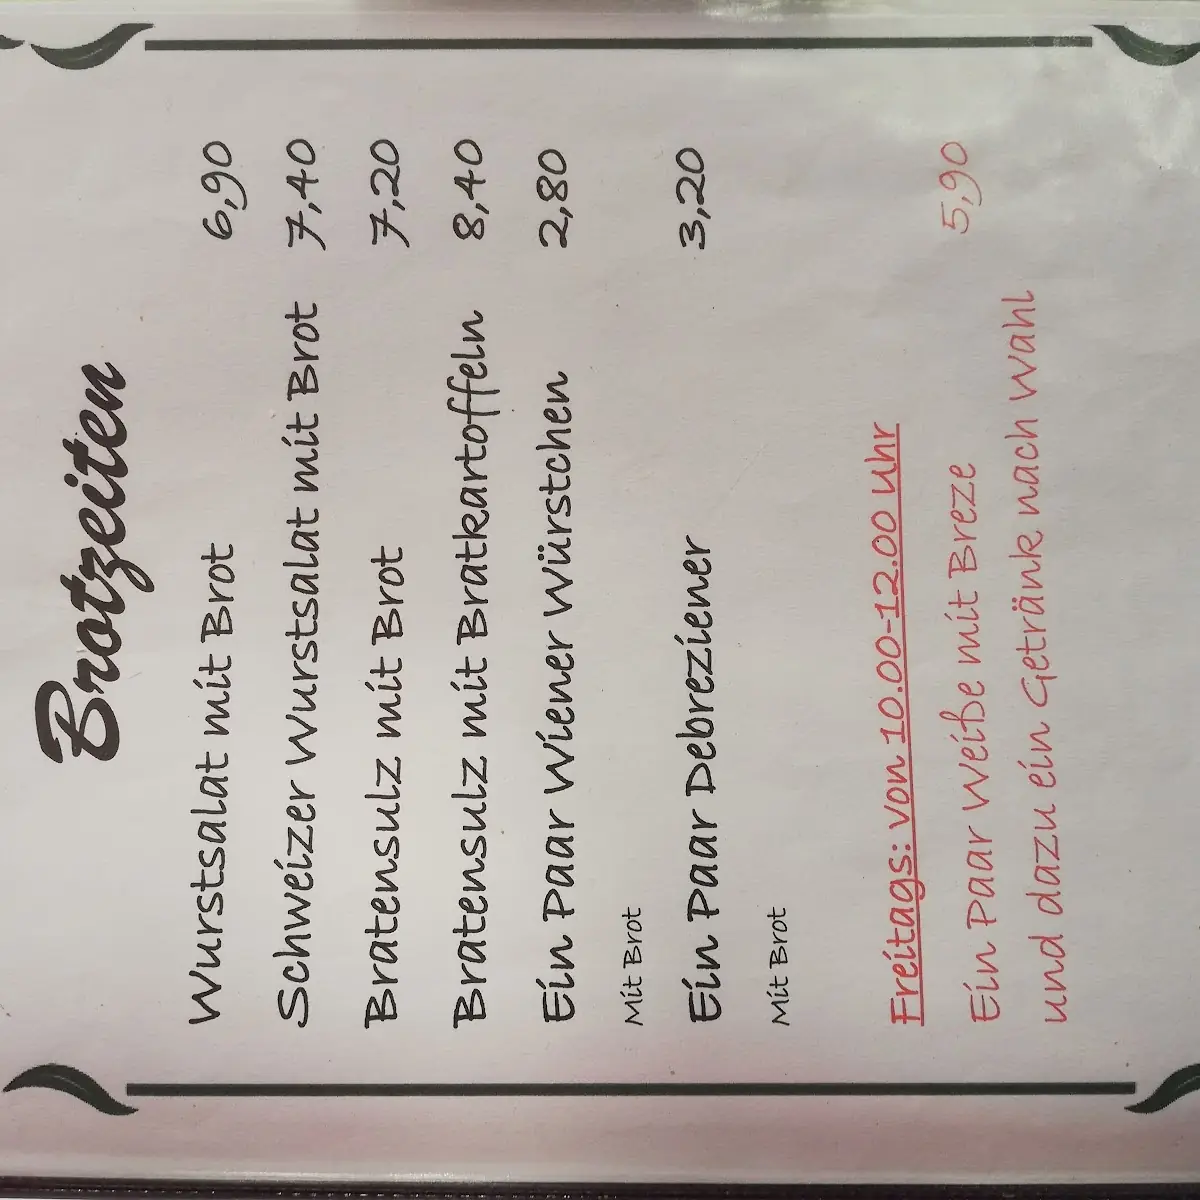 Brotzeiten
Wurstsalat mit Brot 6,90
Schweizer Wurstsalat mit Brot 7,40
Bratensulz mit Brot 7,20
Bratensulz mit Bratkartoffeln 8,40
Ein Paar Wiener Würstchen 2,80
Mit Brot
Ein Paar Debreziener 3,20
Mit Brot
Freitags: von 10.00-12.00 Uhr
Ein Paar Weiße mit Breze 5,90
und dazu ein Getränk nach Wahl